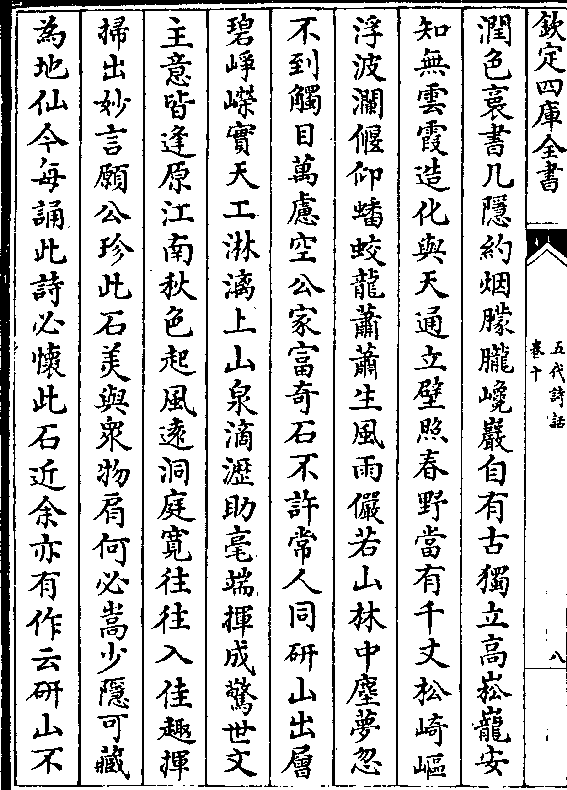 欽定四庫全書
潤色裛書几隱約烟朦朧巉巖自有古獨立高崧巃安
知無雲霞造化與天通立壁照春野當有千丈松崎嶇
浮波瀾偃仰蟠蛟龍蕭蕭生風雨儼若山林中塵夢忽
不到觸目萬慮空公家富奇石不許常人同研山出層
碧崢嶸實天工淋漓上山泉滴瀝助毫端揮成驚世文
主意皆逢原江南秋色起風遠洞庭寛往往入佳趣揮
掃出妙言願公珍此石羙與衆物肩何必嵩少隱可藏
為地仙今每誦此詩必懷此石近余亦有作云研山不
五代詩話
卷十
八